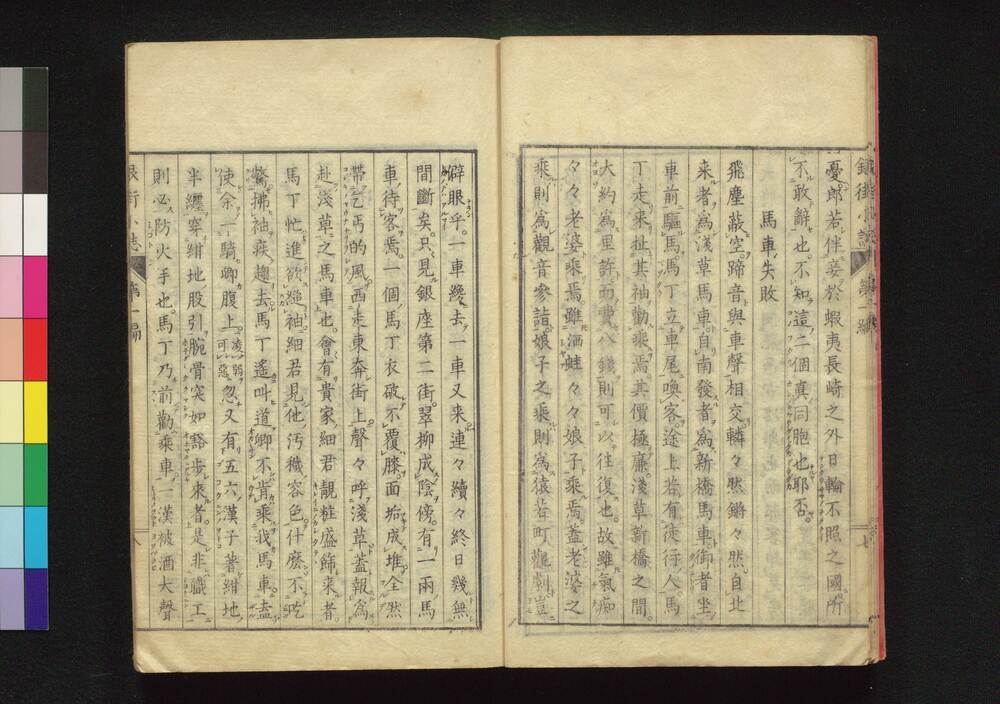 憂郎若伴妾於蝦夷長崎之外日輪不照之國所
不敢辭也不知這二個真同胞也耶否
馬車失敗
飛塵蔽空蹄音與車聲相交轔々然鏘々然自北
来者為淺草馬車自南發者為新橋馬車御者坐
車前驅馬馬丁立車尾喚客途上若有徒行人馬
丁走来扯其袖勸乘焉其價極廉淺草新橋之間
大約為里許而費八錢則可以往復也故雖氣痴
々々老婆乘焉雖洒蛙々々娘子乘焉蓋老婆之
乘則為觀音參詣娘子之乘則為猿若町觀劇豈
僻眼乎一車纔去一車又来連々續々終日幾無
間斷矣只見銀座第二街翠柳成陰傍有一兩馬
車待客焉一個馬丁衣破不覆膝面垢成堆全然
帶乞丐的風西走東奔街上聲々呼淺草蓋報為
赴淺草之馬車也會有貴家細君靚粧盛飾来者
馬丁忙進欲縋袖細君見他污穢容色什麼不吃
驚拂袖疾趨去馬丁遙叫道卿不肯乘我馬車盍
使余一騎卿腹上凌弱可惡忽又有五六漢子著紺地
半纏穿紺地股引腕骨突如豁步来者是非職工
則必防火手也馬丁乃前勸乘車一漢被酒大聲
銀街小誌
第一編
七
八